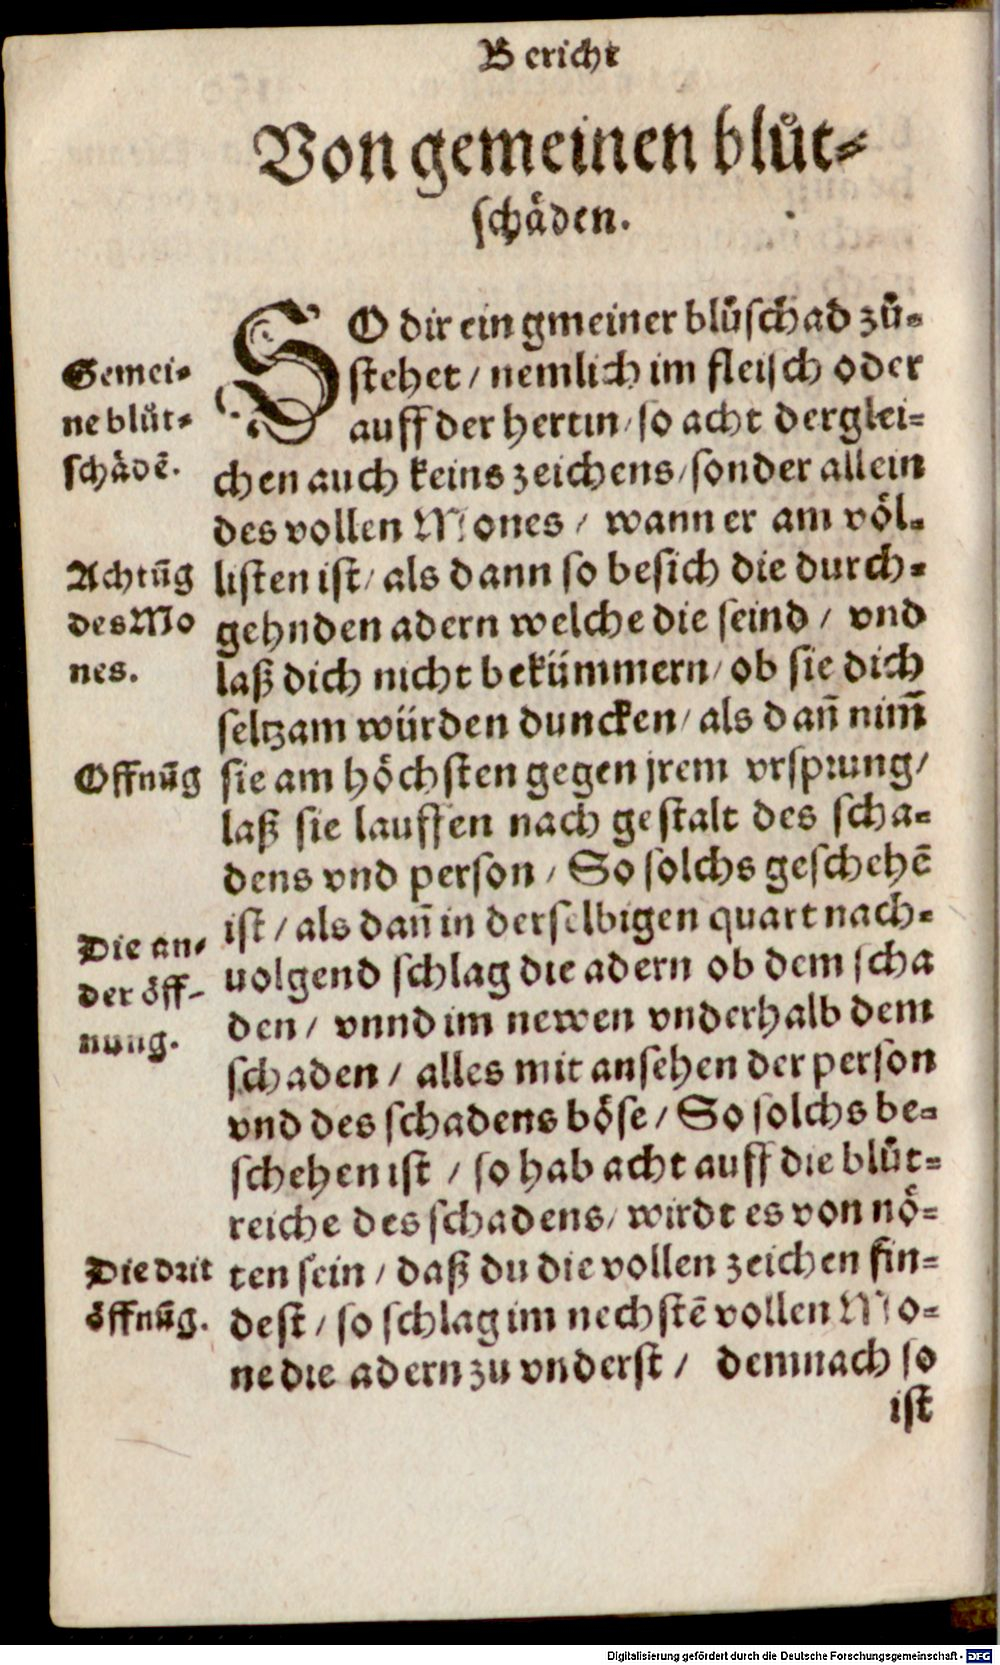 Bericht
Von gemeinen blůt⸗
schäden.
SO dir ein gmeiner blůschad zů⸗
stehet / nemlich im fleisch oder
auff der hertin / so acht derglei⸗
chen auch keins zeichens / sonder allein
des vollen Mones / wann er am völ⸗
listen ist / als dann so besich die durch⸗
gehnden adern welche die seind / vnd
laß dich nicht bekümmern / ob sie dich
seltzam würden duncken / als dañ nim̄
sie am höchsten gegen jrem vrsprung /
laß sie lauffen nach gestalt des scha⸗
dens vnd person / So solchs geschehē
ist / als dañ in derselbigen quart nach⸗
uolgend schlag die adern ob dem scha
den / vnnd im newen vnderhalb dem
schaden / alles mit ansehen der person
vnd des schadens böse / So solchs be⸗
schehen ist / so hab acht auff die blůt⸗
reiche des schadens / wirdt es von nö⸗
ten sein / daß du die vollen zeichen fin⸗
dest / so schlag im nechstē vollen Mo⸗
ne die adern zu vnderst / demnach so
ist
Gemei⸗
ne blůt⸗
schädē.
Achtūg
des Mo
nes.
Offnūg
Die an⸗
der öff⸗
nung.
Die drit
öffnūg.
Digitalisierung gefördert durch die Deutsche Forschungsgemeinschaft - DFG